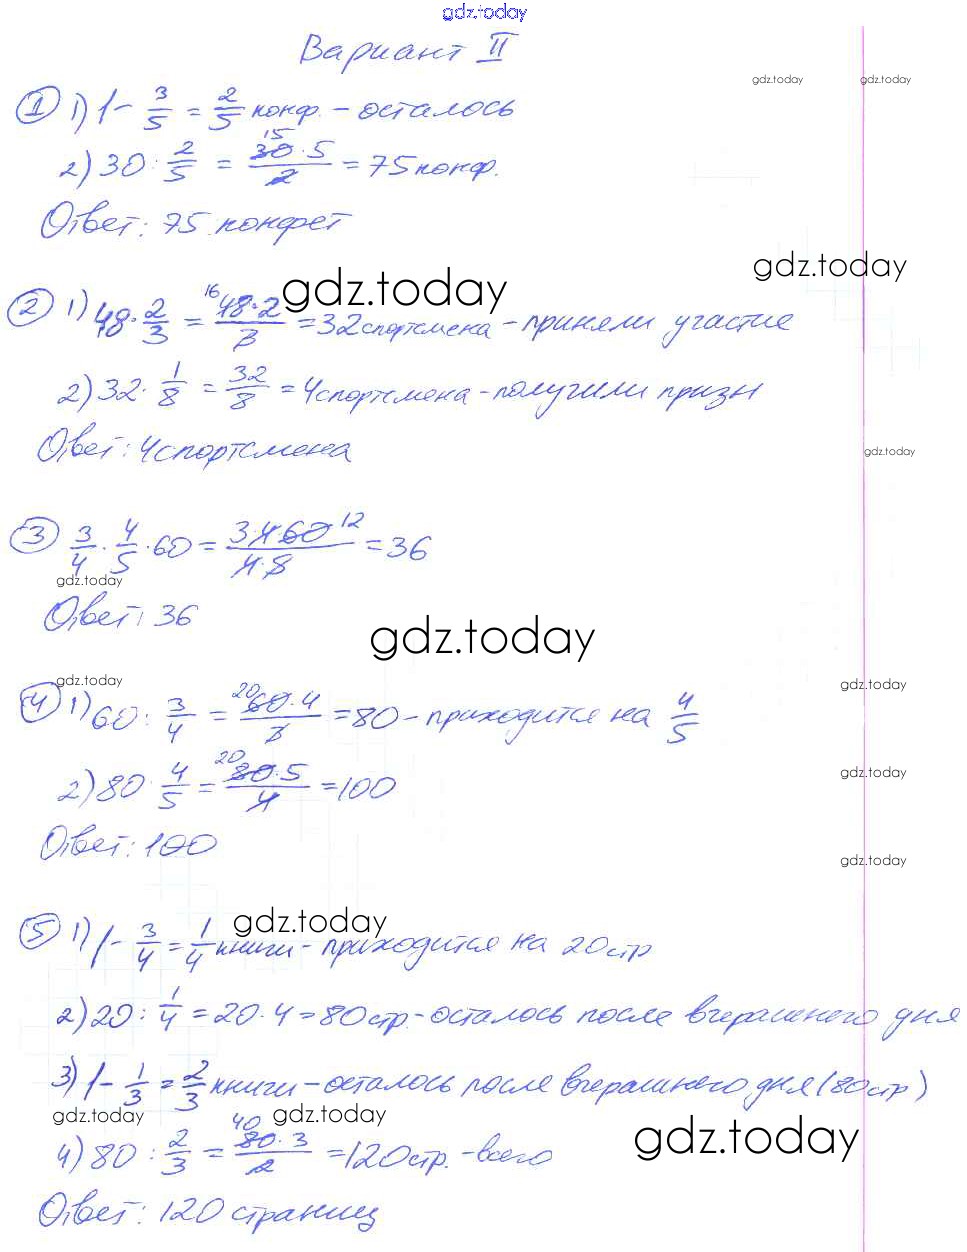 gdz.today
Вариант II
gdz.today gdz.today
1 1) 1 - 3/5 = 2/5 конф. - осталось
2) 30 : 2/5 = 30·5/2 = 75 конф.
15
Ответ: 75 конфет
gdz.today
gdz.today
2 1) 48 · 2/3 = 48·2/3 = 32 спортсмена - приняли участие
16
2) 32 · 1/8 = 32/8 = 4 спортсмена - получили призы
Ответ: 4 спортсмена
gdz.today
3 3/4 · 4/5 · 60 = 3·4·60/4·5 = 36
12
gdz.today
Ответ: 36
gdz.today
gdz.today
gdz.today
4 1) 60 : 3/4 = 60·4/3 = 80 - приходится на 4/5
20
2) 80 : 4/5 = 80·5/4 = 100
20
gdz.today
Ответ: 100
gdz.today
gdz.today
5 1) 1 - 3/4 = 1/4 книги - приходится на 20 стр
2) 20 : 1/4 = 20 · 4 = 80 стр. - осталось после вчерашнего дня
3) 1 - 1/3 = 2/3 книги - осталось после вчерашнего дня (80 стр)
gdz.today gdz.today
gdz.today
4) 80 : 2/3 = 80·3/2 = 120 стр. - всего
40
Ответ: 120 страниц